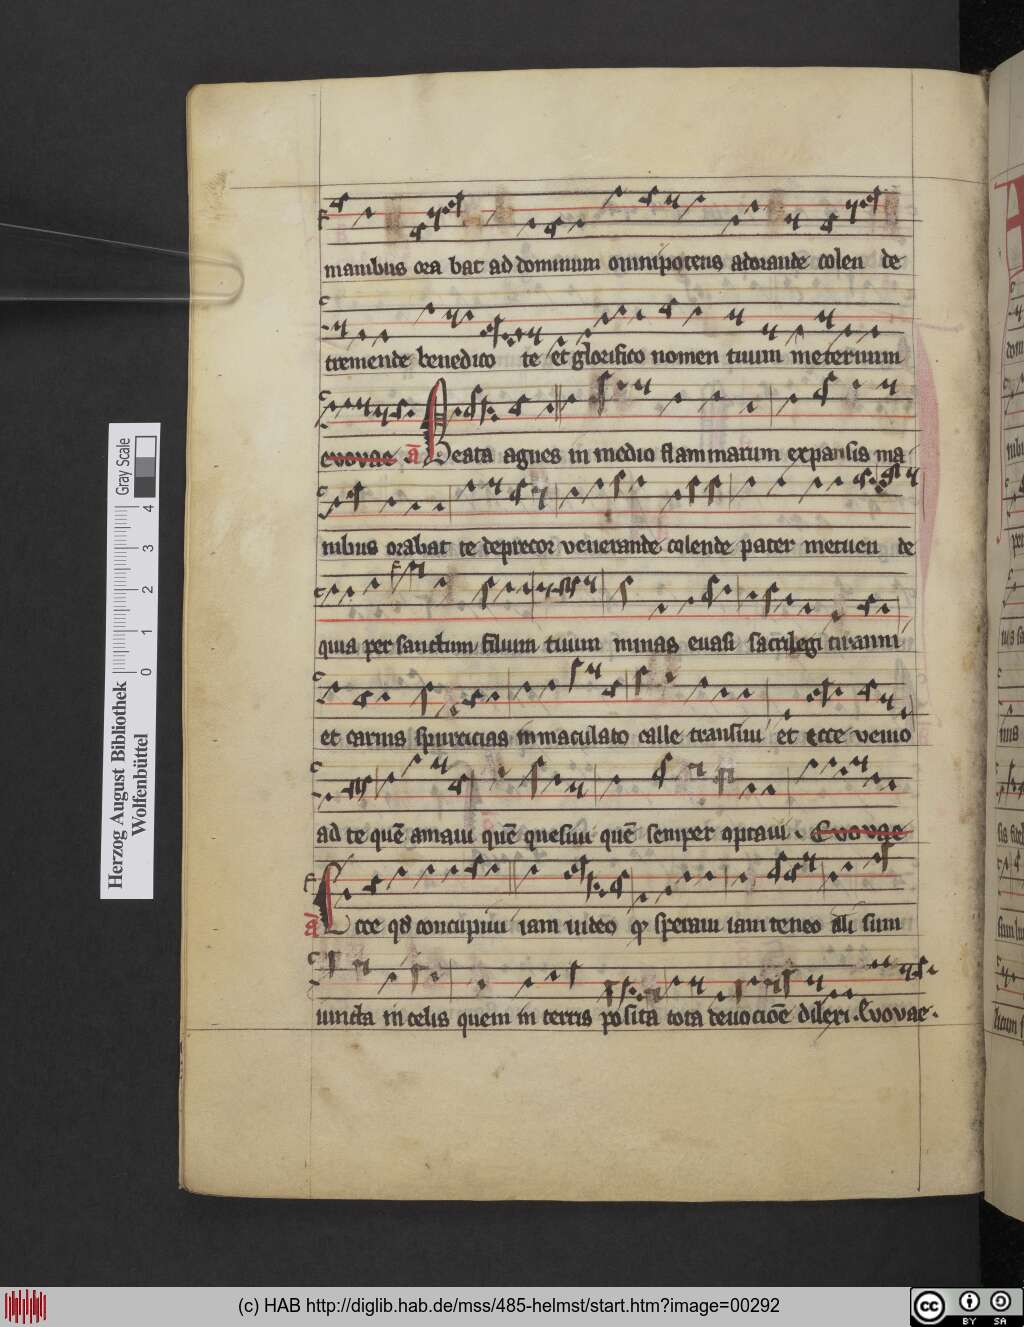 manibus ora bat ad dominum omnipotens adorande colen de
tremende benedico te et glorifico nomen tuum meternum
evovae a Beata agnes in medio flammarum expansis ma
nibus orabat te deprecor venerande colende pater metuen de
quia per sanctum filium tuum minas euasi sacrilegi tiranni
et carnis spurcicias inmaculato calle transiui et ecce venio
ad te quē amaui quē quesiui quē semper optaui . Evovae
a Ecce qd concupiui iam uideo speraui iam teneo illi sum
iuncta in celis quem in terris posita tota deuocioē dilexi . Evovae .
Herzog August Bibliothek
Wolfenbüttel
Gray Scale
0 1 2 3 4
(c) HAB http://diglib.hab.de/mss/485-helmst/start.htm?image=00292
cc BY SA